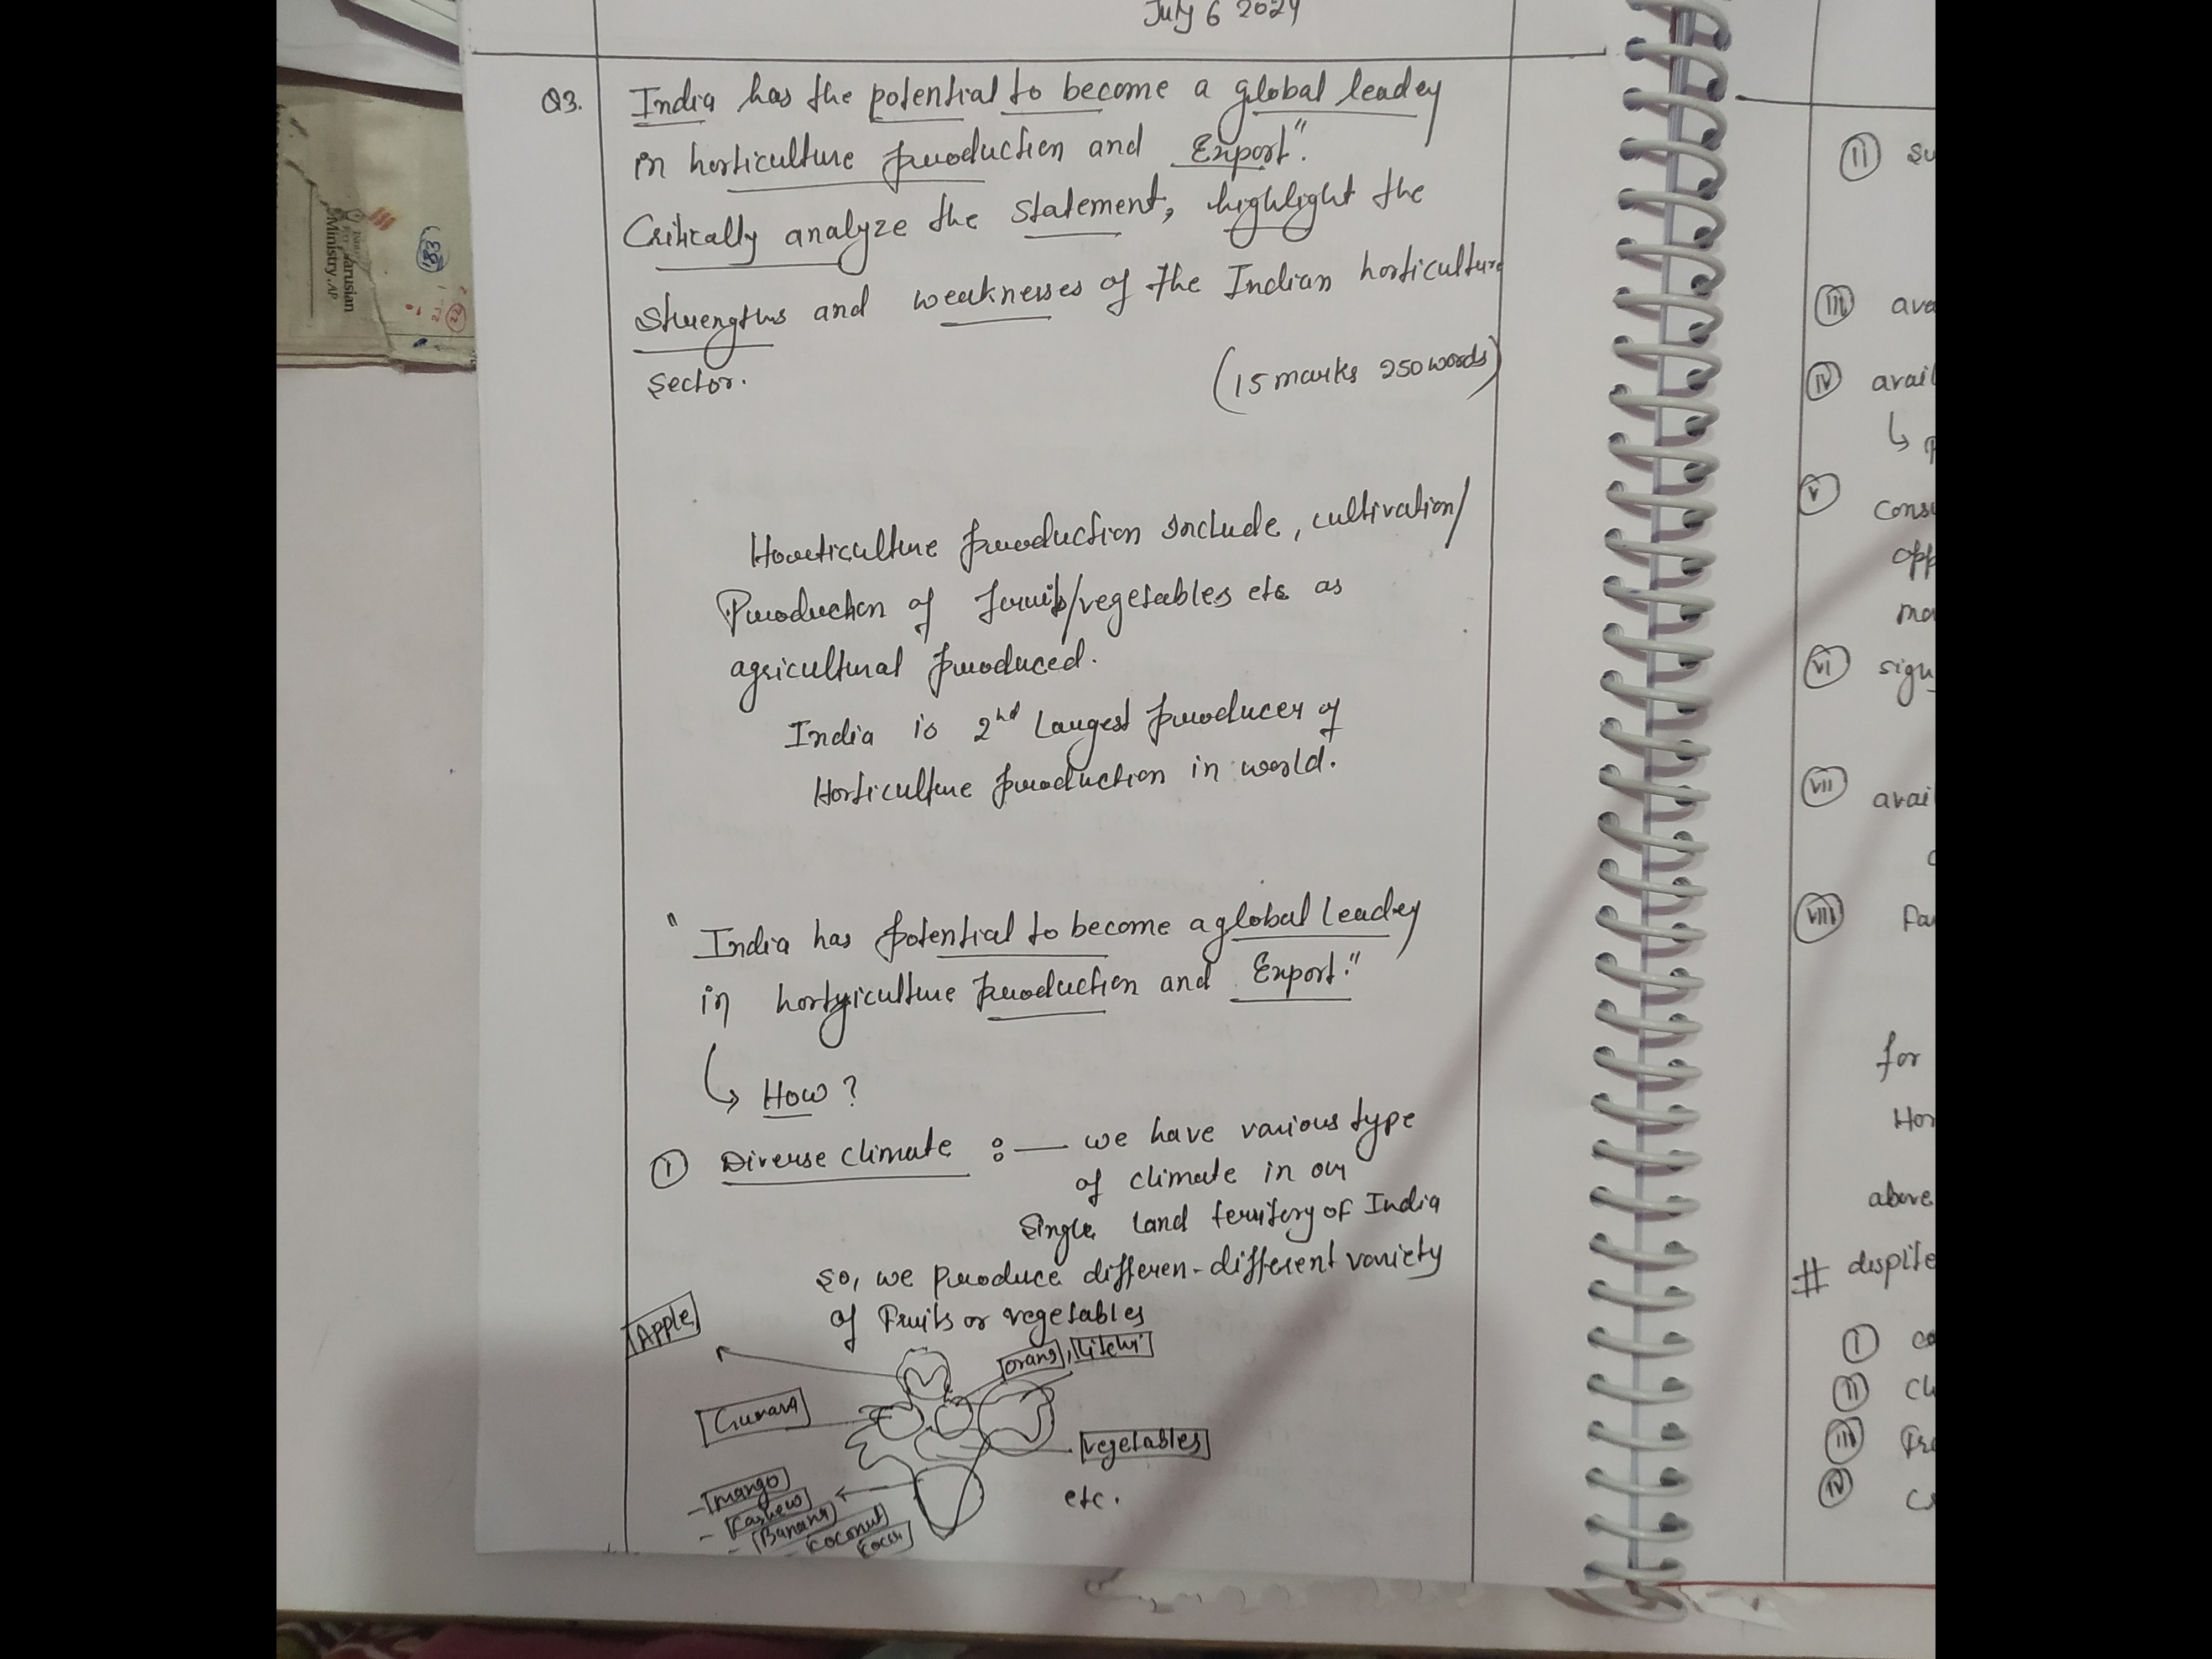 July 6 2024
Q3. India has the potential to become a global leader
in horticulture production and Export".
Critically analyze the statement, highlight the
Strengths and weaknesses of the Indian horticulture
sector.
(15 marks 250 words)
Horticulture production include, cultivation/
Production of fruits/vegetables etc as
agricultural produced.
India is 2nd Largest producer of
Horticulture production in world.
" India has potential to become a global leader
in horticulture production and Export."
↳ How?
① Diverse climate :— we have various type
of climate in our
single land territory of India
so, we produce differen-different variety
of Fruits or vegetables
Apple
orang, Litchi
Gurava
vegetables
- mango
- cashew
- Banana
- coconut
etc.
Ministry.AP
183
22
ii su
iii ava
iv avail
↳ p
v cons
opp
ma
vi sign
vii avai
viii Fa
for
Hor
above
# despite
i co
ii cl
iii Fr
iv cs